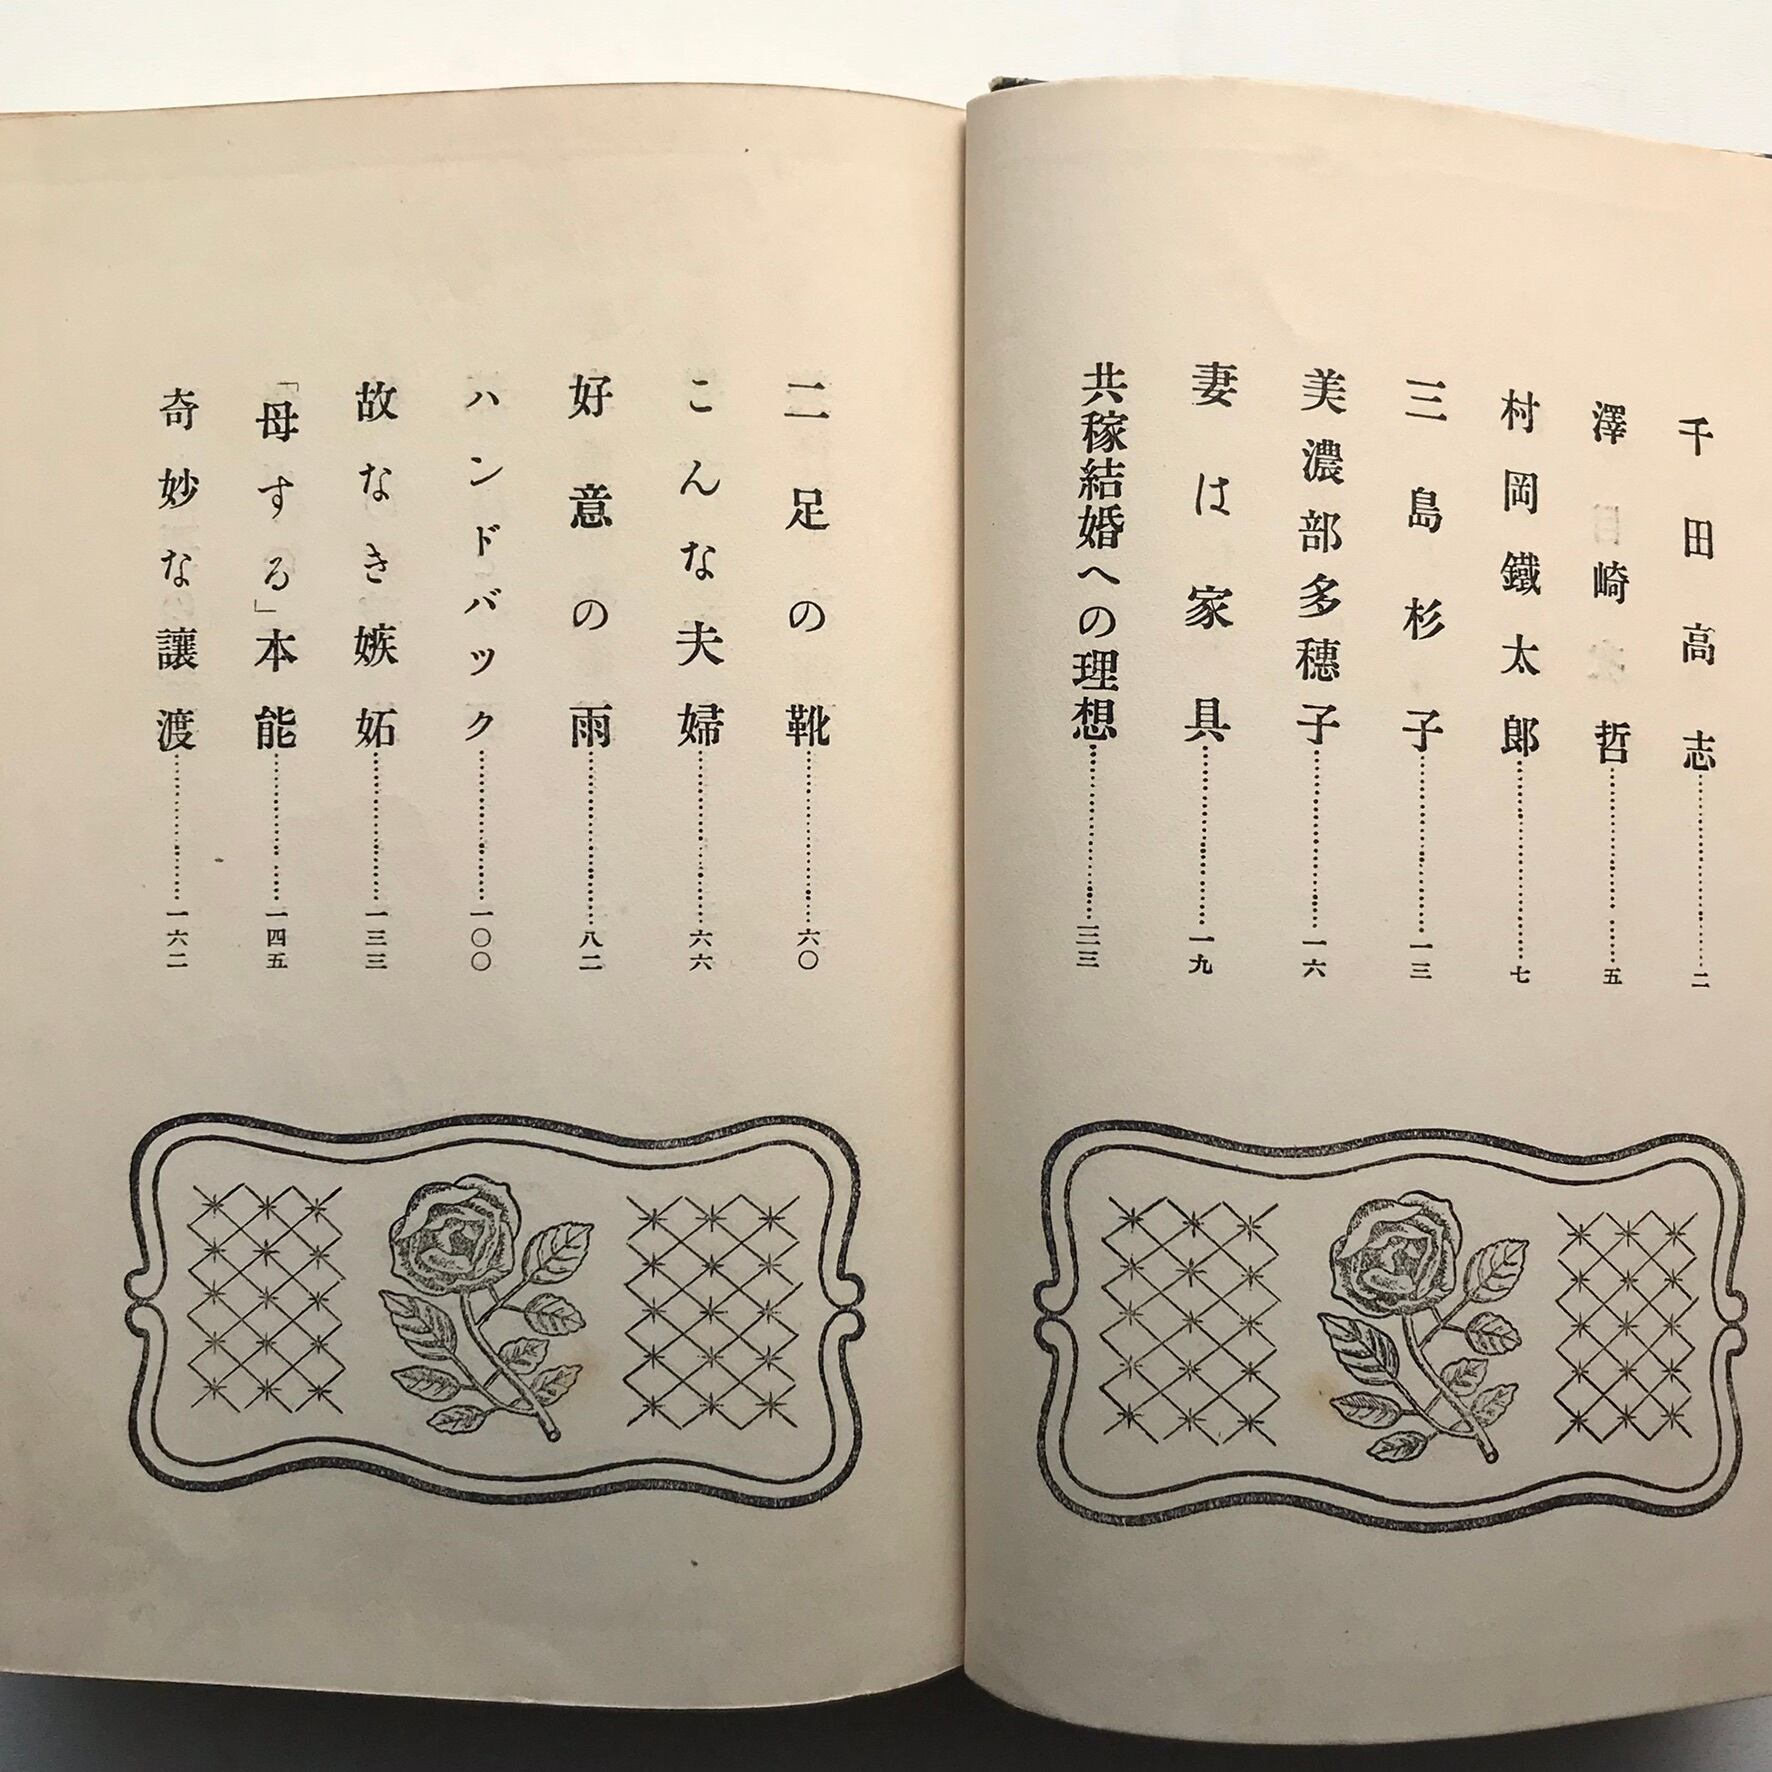 千田高志……二
澤崎哲……五
村岡鐵太郎……七
三島杉子……一三
美濃部多穗子……一六
妻は家具……一九
共稼結婚への理想……三三
二足の靴……六〇
こんな夫婦……六六
好意の雨……八二
ハンドバック……一〇〇
故なき嫉妬……一三三
「母する」本能……一四五
奇妙な讓渡……一六二